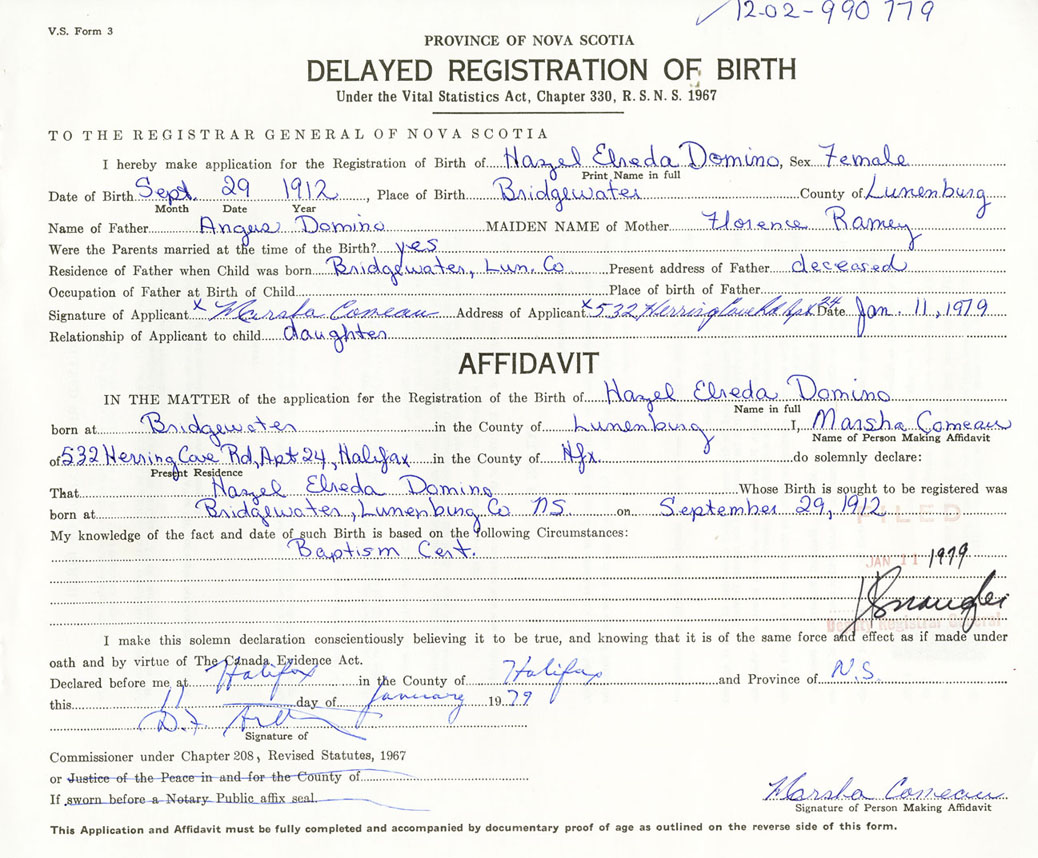 12-02-990 779
V.S. Form 3
PROVINCE OF NOVA SCOTIA
DELAYED REGISTRATION OF BIRTH
Under the Vital Statistics Act, Chapter 330, R. S. N. S. 1967
TO THE REGISTRAR GENERAL OF NOVA SCOTIA
I hereby make application for the Registration of Birth of Hazel Elreda Domino, Sex Female
Print Name in full
Date of Birth Sept. 29 1912, Place of Birth Bridgewater County of Lunenburg
Month Date Year
Name of Father Angus Domino MAIDEN NAME of Mother Florence Ramey
Were the Parents married at the time of the Birth? yes
Residence of Father when Child was born Bridgewater, Lun. Co Present address of Father deceased
Occupation of Father at Birth of Child Place of birth of Father
Signature of Applicant x Marsha Comeau Address of Applicant x 532 Herring Cove Rd. Apt 24 Date Jan. 11, 1979
Relationship of Applicant to child daughter
AFFIDAVIT
IN THE MATTER of the application for the Registration of the Birth of Hazel Elreda Domino
Name in full
born at Bridgewater in the County of Lunenburg I, Marsha Comeau
Name of Person Making Affidavit
of 532 Herring Cove Rd, Apt 24, Halifax in the County of Hfx. do solemnly declare:
Present Residence
That Hazel Elreda Domino Whose Birth is sought to be registered was
born at Bridgewater, Lunenburg Co NS on September 29, 1912
FILED
My knowledge of the fact and date of such Birth is based on the following Circumstances:
Baptism Cert.
JAN 11 1979
Deputy Registrar General
I make this solemn declaration conscientiously believing it to be true, and knowing that it is of the same force and effect as if made under
oath and by virtue of The Canada Evidence Act.
Declared before me at Halifax in the County of Halifax and Province of N.S.
this 11 day of January 19 79
D.F.
Signature of
Commissioner under Chapter 208, Revised Statutes, 1967
or Justice of the Peace in and for the County of
If sworn before a Notary Public affix seal.
Marsha Comeau
Signature of Person Making Affidavit
This Application and Affidavit must be fully completed and accompanied by documentary proof of age as outlined on the reverse side of this form.